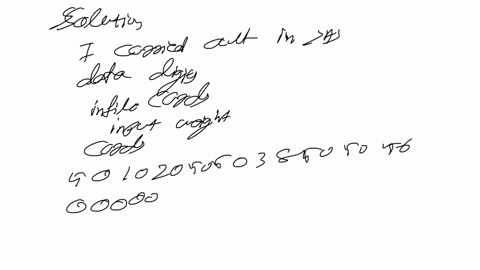 Solution
I carried out in SAS
data
infile cards
input weight
cards
5 0 1 0 2 0 5 0 5 0 3 8 5 5 0 5 0 5 6
0 0 0 0 0